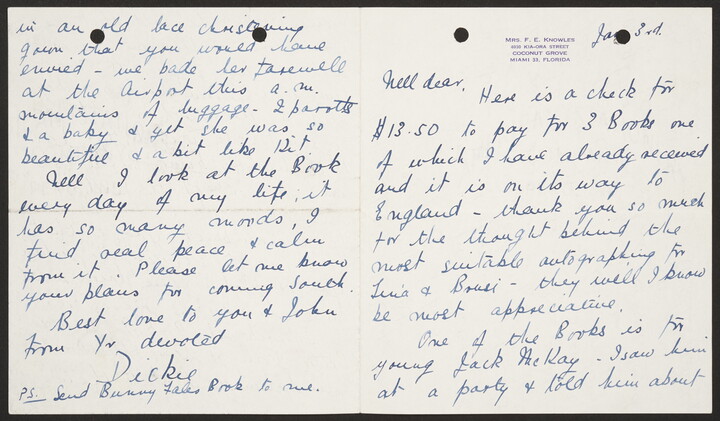 MRS. F. E. KNOWLES
4020 KIA-ORA STREET
COCONUT GROVE
MIAMI 33, FLORIDA
Jan 3rd.
Nell dear.
Here is a check for
$13.50 to pay for 3 Books one
of which I have already received
and it is on its way to
England - thank you so much
for the thought behind the
most suitable autographing for
& - they will I know
be most appreciative.
One of the Books is for
young Jack McKay - I saw him
at a party & told him about
in an old lace christening
gown that you would have
envied - we bade her farewell
at the airport this a.m.
mountains of luggage - 2 parrots
& a baby & yet she was so
beautiful & a bit like Kit
Nell I look at the Book
every day of my life, it
has so many moods, I
find real peace & calm
from it. Please let me know
your plans for coming South.
Best love to you & John
from Yr devoted
Dickie
PS. Send Bunny Book to me.